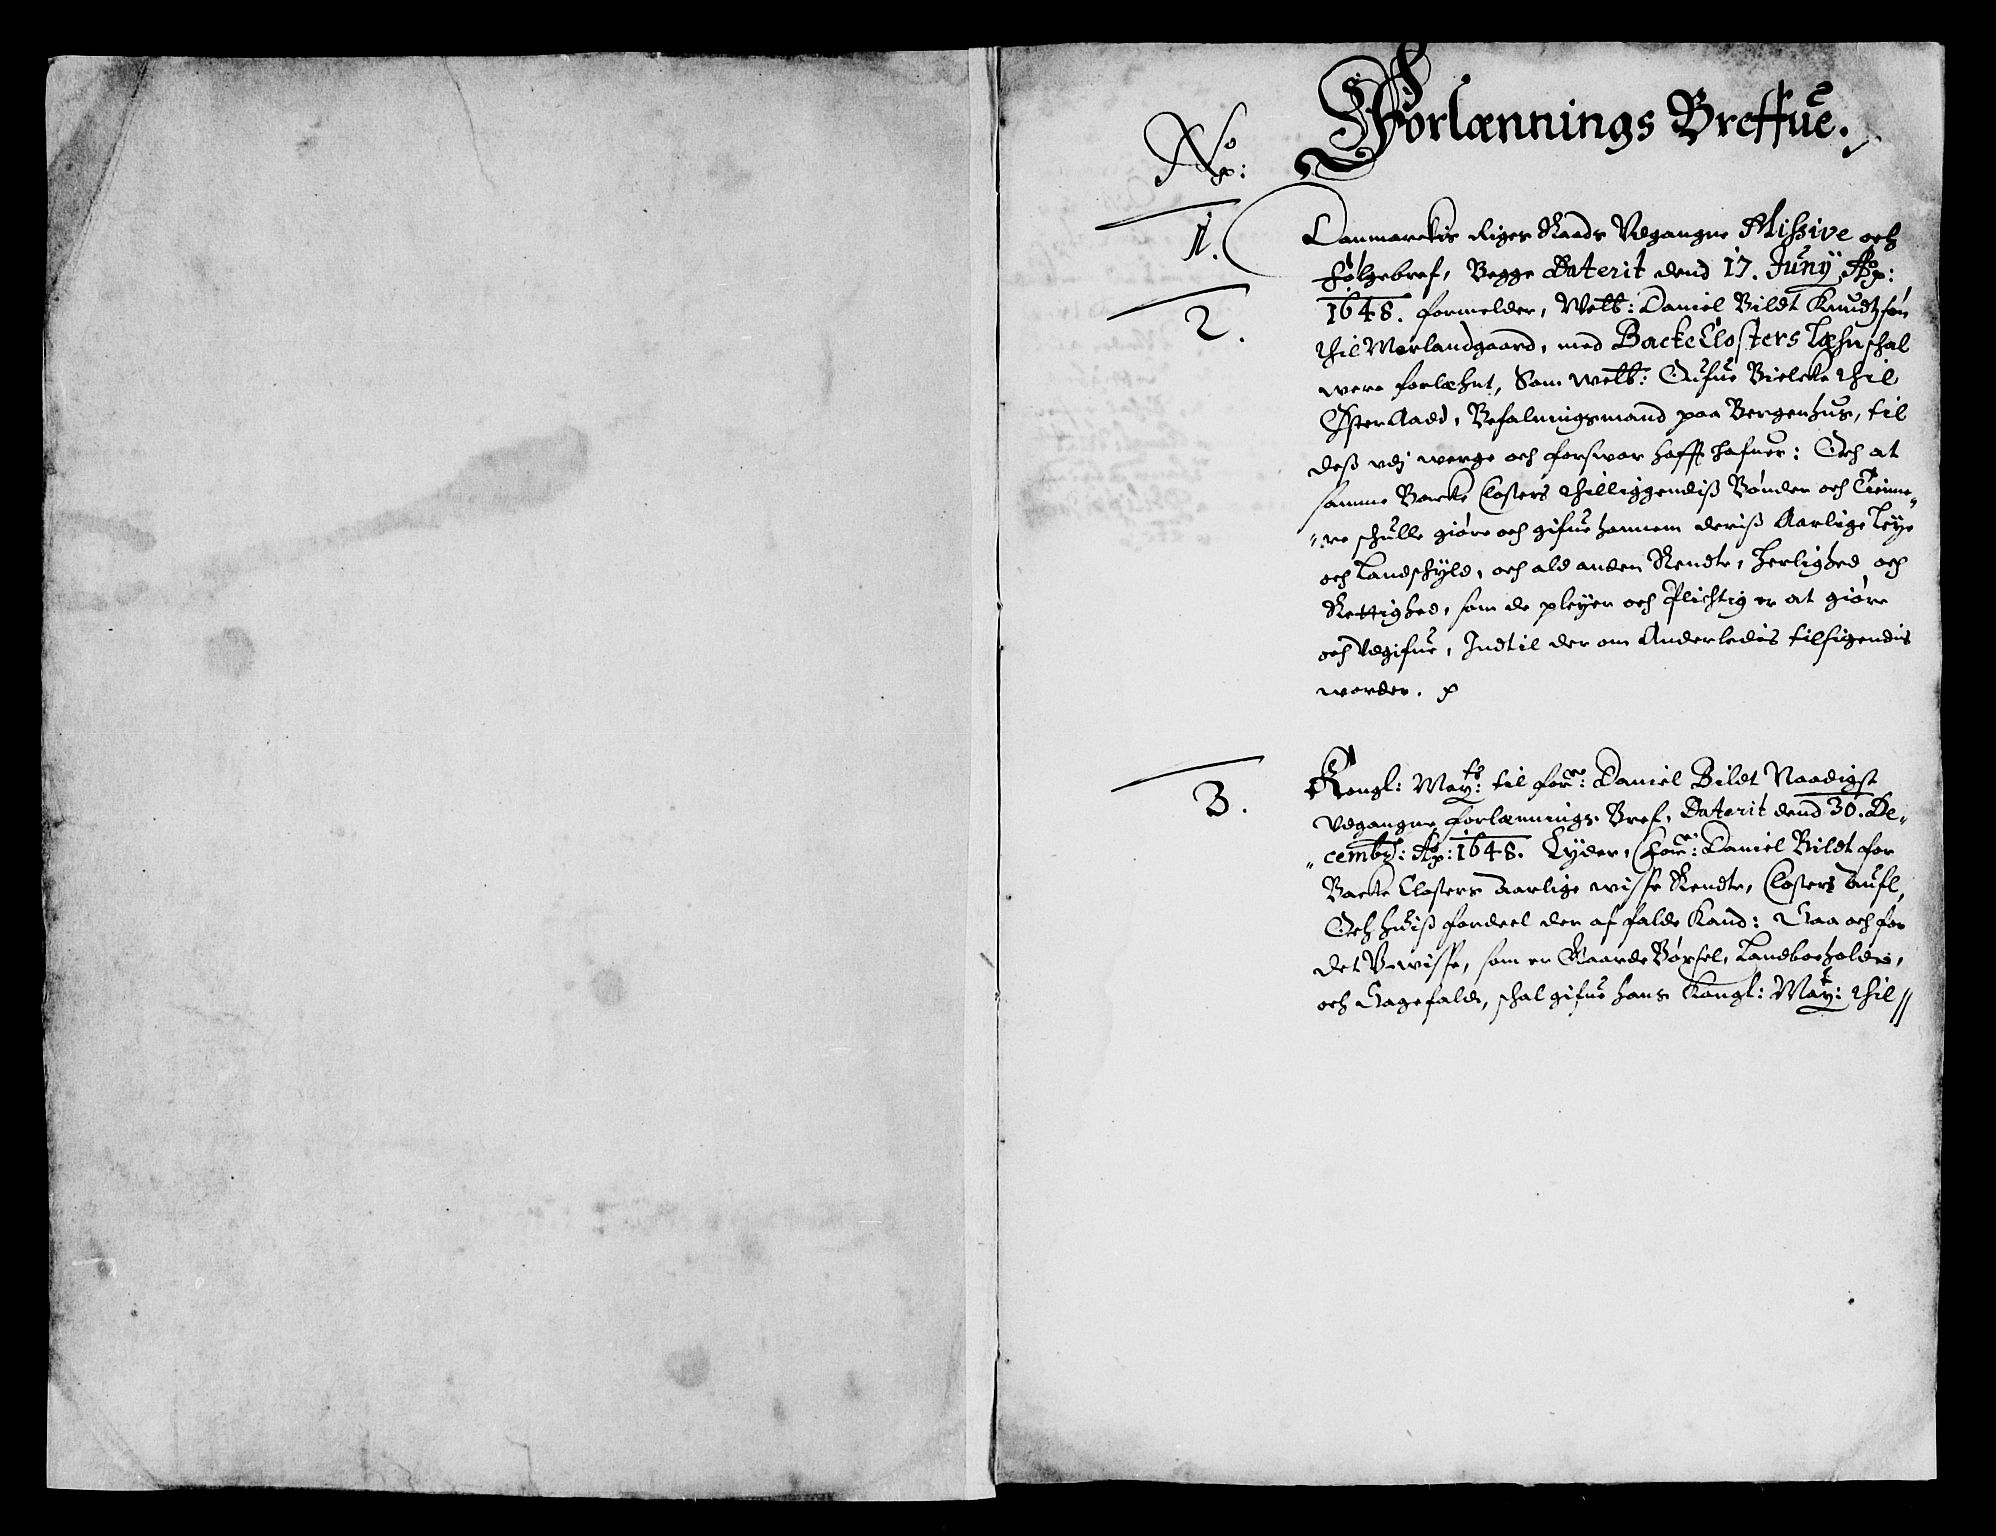 Forlænnings Breffue.
No:
1. Danmarckis Riges Raads Udgangne Missive och
2. Følgebref, Begge Daterit dend 17. Juny Ao:
1648. formelder, Welb: Daniel Bildt Knudtzsøn
thil Morlandgaard, med Backe Closters Læhn schal
were forlæhnt, Som welb: Oufue Bielcke thil
Øster Aadt, Befalningsmand paa Bergenhus, til
deß udj werge och forswar hafft hafuer: Och at
samme Backe Closters thilliggendiß Bønder och Tienne„
„re schulle giøre och gifue hannem deriß Aarlige Leye
och Landschyld, och ald anden Rendte, herlighed och
Rettighed, som de pleyer och Plichtig er at giøre
och Udgifue, Indtil der om Anderledis tilsigendis
worder.
3. Kongl: Mayts: til forne: Daniel Bildt Naadigst
Udgangne forlænnings Bref, Daterit dend 30. De„
„cembr: Ao: 1648. Lyder, forne: Daniel Bildt for
Backe Closters Aarlige wisse Rendte, Closters Aufl,
Och hwiß fordeel der af falde Kand: Saa och for
det Uwisse, som er Gaarde Bøxsel, Landboeholdr,
och Sagefald, schal gifue hans Kongl: Mayt: thil